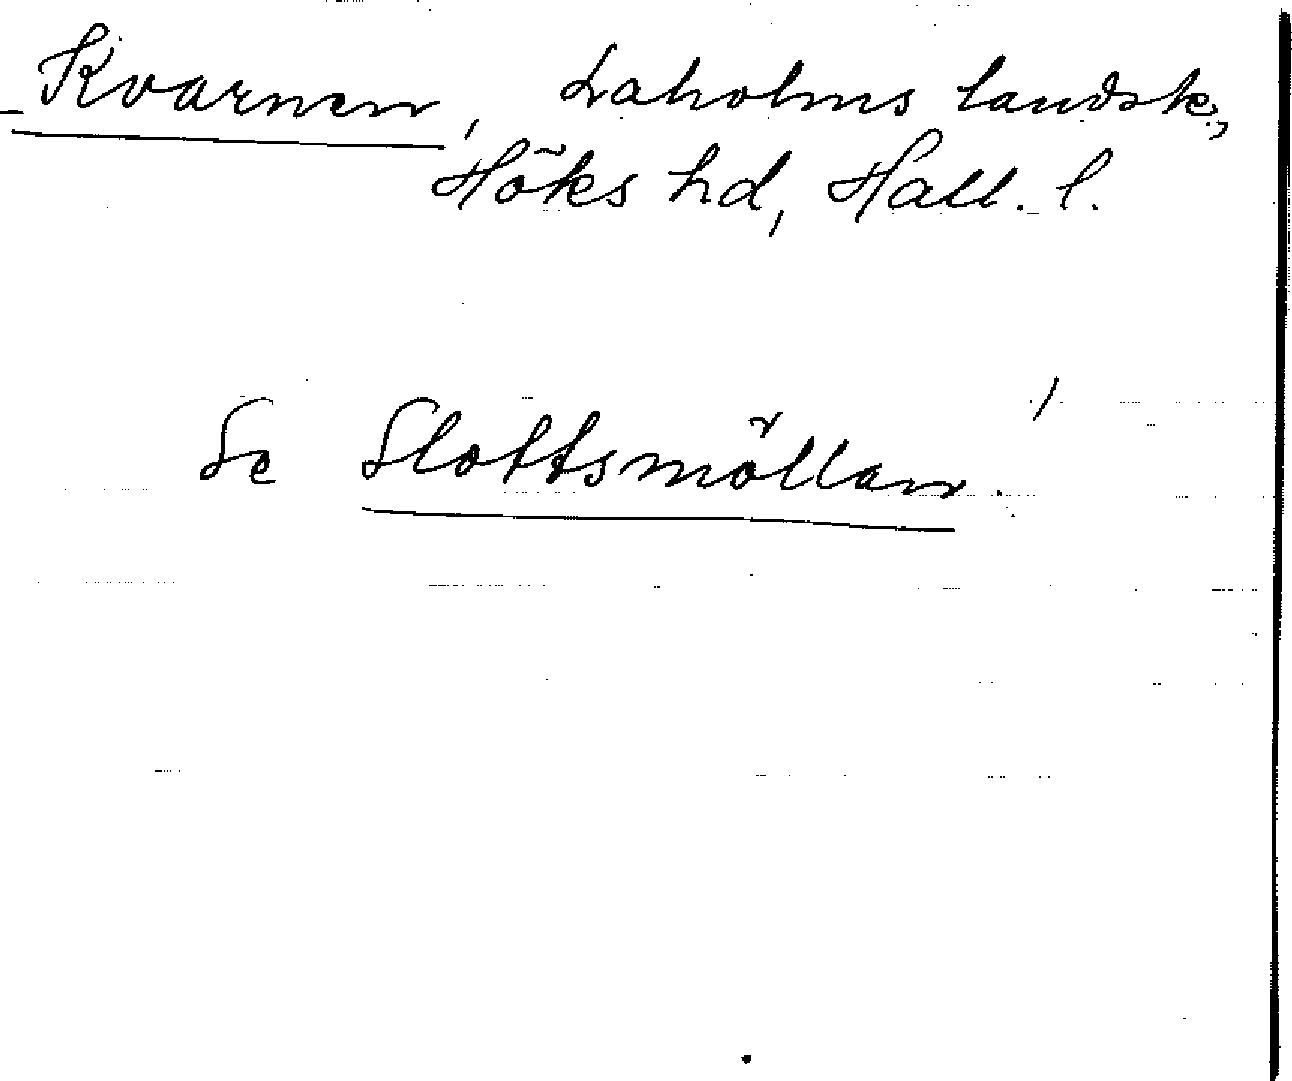 Kvarnen, Laholms landsk.,
Höks hd, Hall. l.
Se Slottsmöllan.